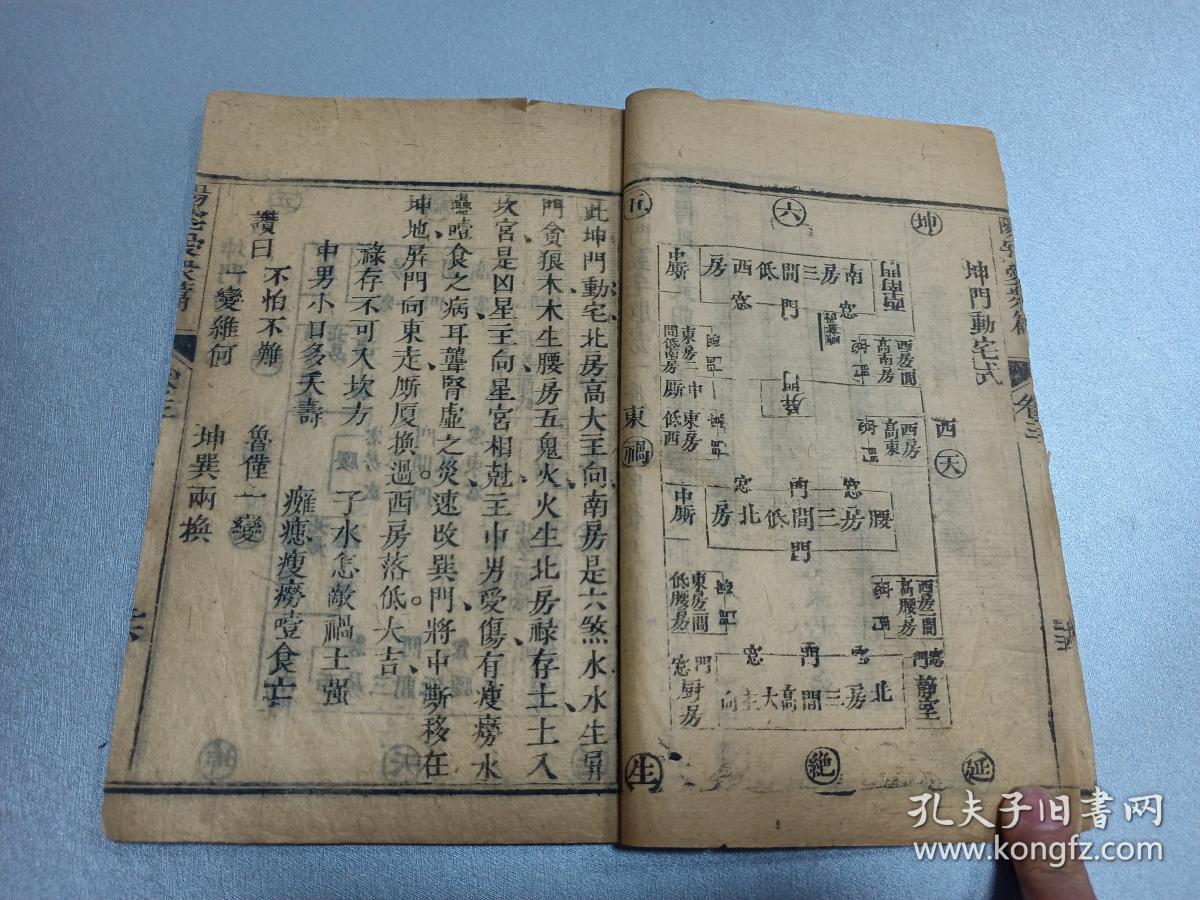 坤門動宅式
坤
六
五
南房三間低西房
窓門
中厠
西房一間高南房
東房二間低南房
屏門
中厠
西
天
西房高東
東房低西
東
禍
窓門窓
腰房三間低北房
門
中厠
西房一間高腰房
東房一間低腰房
窓門窓
北房三間高大主向
静室
門
窓
厨房
延
絶
生
此坤門動宅北房高大主向南房是六煞水水生屏
門貪狼木木生腰房五鬼火火生北房禄存土土入
坎宮是凶星主向星宮相尅主中男受傷有瘦癆水
蠱噎食之病耳聾腎虛之災速改巽門將中厮移在
坤地屏門向東走厮厦換過西房落低大吉
祿存不可入坎方
子水怎敵禍土强
中男小口多夭壽
癱瘓瘦癆噎食亡
讚曰
不怕不難
魯僮一變
一變維何
坤巽兩换
卷三
孔夫子旧书网
www.kongfz.com